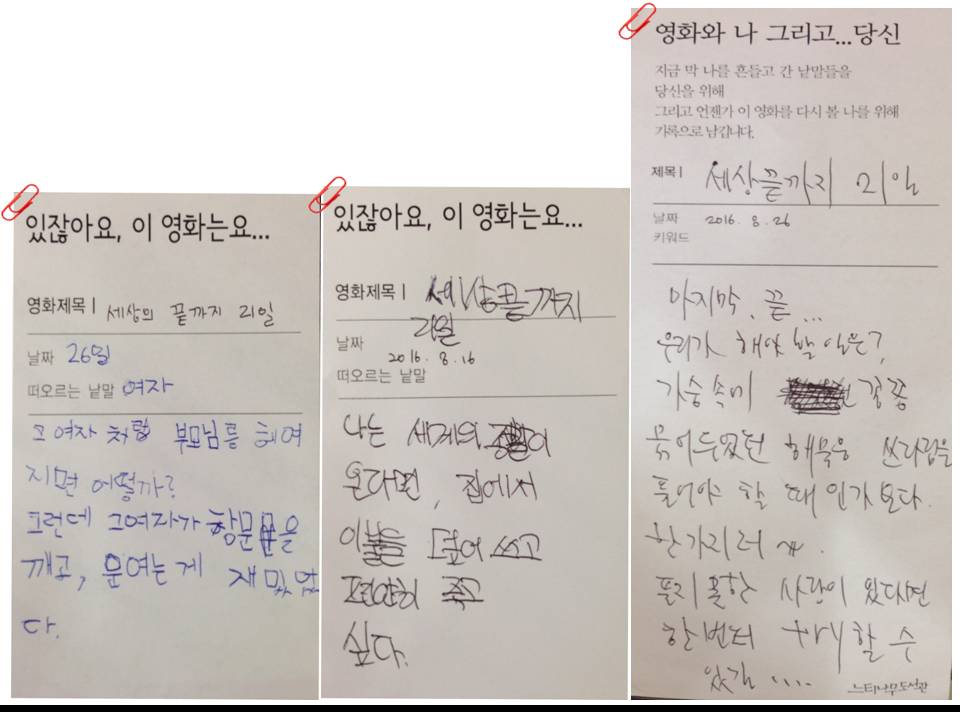 있잖아요, 이 영화는요...
영화제목 | 세상의 끝까지 21일
날짜 26일
떠오르는 낱말 여자
그 여자 처럼 부모님를 헤여
지면 어떨까?
그런데 그여자가 창문을
깨고, 문여는게 재밌었
다.
있잖아요, 이 영화는요...
영화제목 | 세상끝까지
21일
날짜
2016. 8. 16
떠오르는 낱말
나는 세계의 이
온다면, 집에서
이불을 덮어 쓰고
편안히 죽고
싶다.
영화와 나 그리고...당신
지금 막 나를 흔들고 간 낱말들을
당신을 위해
그리고 언젠가 이 영화를 다시 볼 나를 위해
기록으로 남깁니다.
제목 | 세상끝까지 21일
날짜 2016. 8. 26
키워드
마지막, 끝...
우리가 해야 할 일은?
가슴속에 꽁꽁
묶어두었던 해묵은 쓰라림을
풀어야 할 때인가 보다.
한가지 더
풀지 못한 사람이 있다면
한번더 try할 수
있길 ....
느티나무도서관